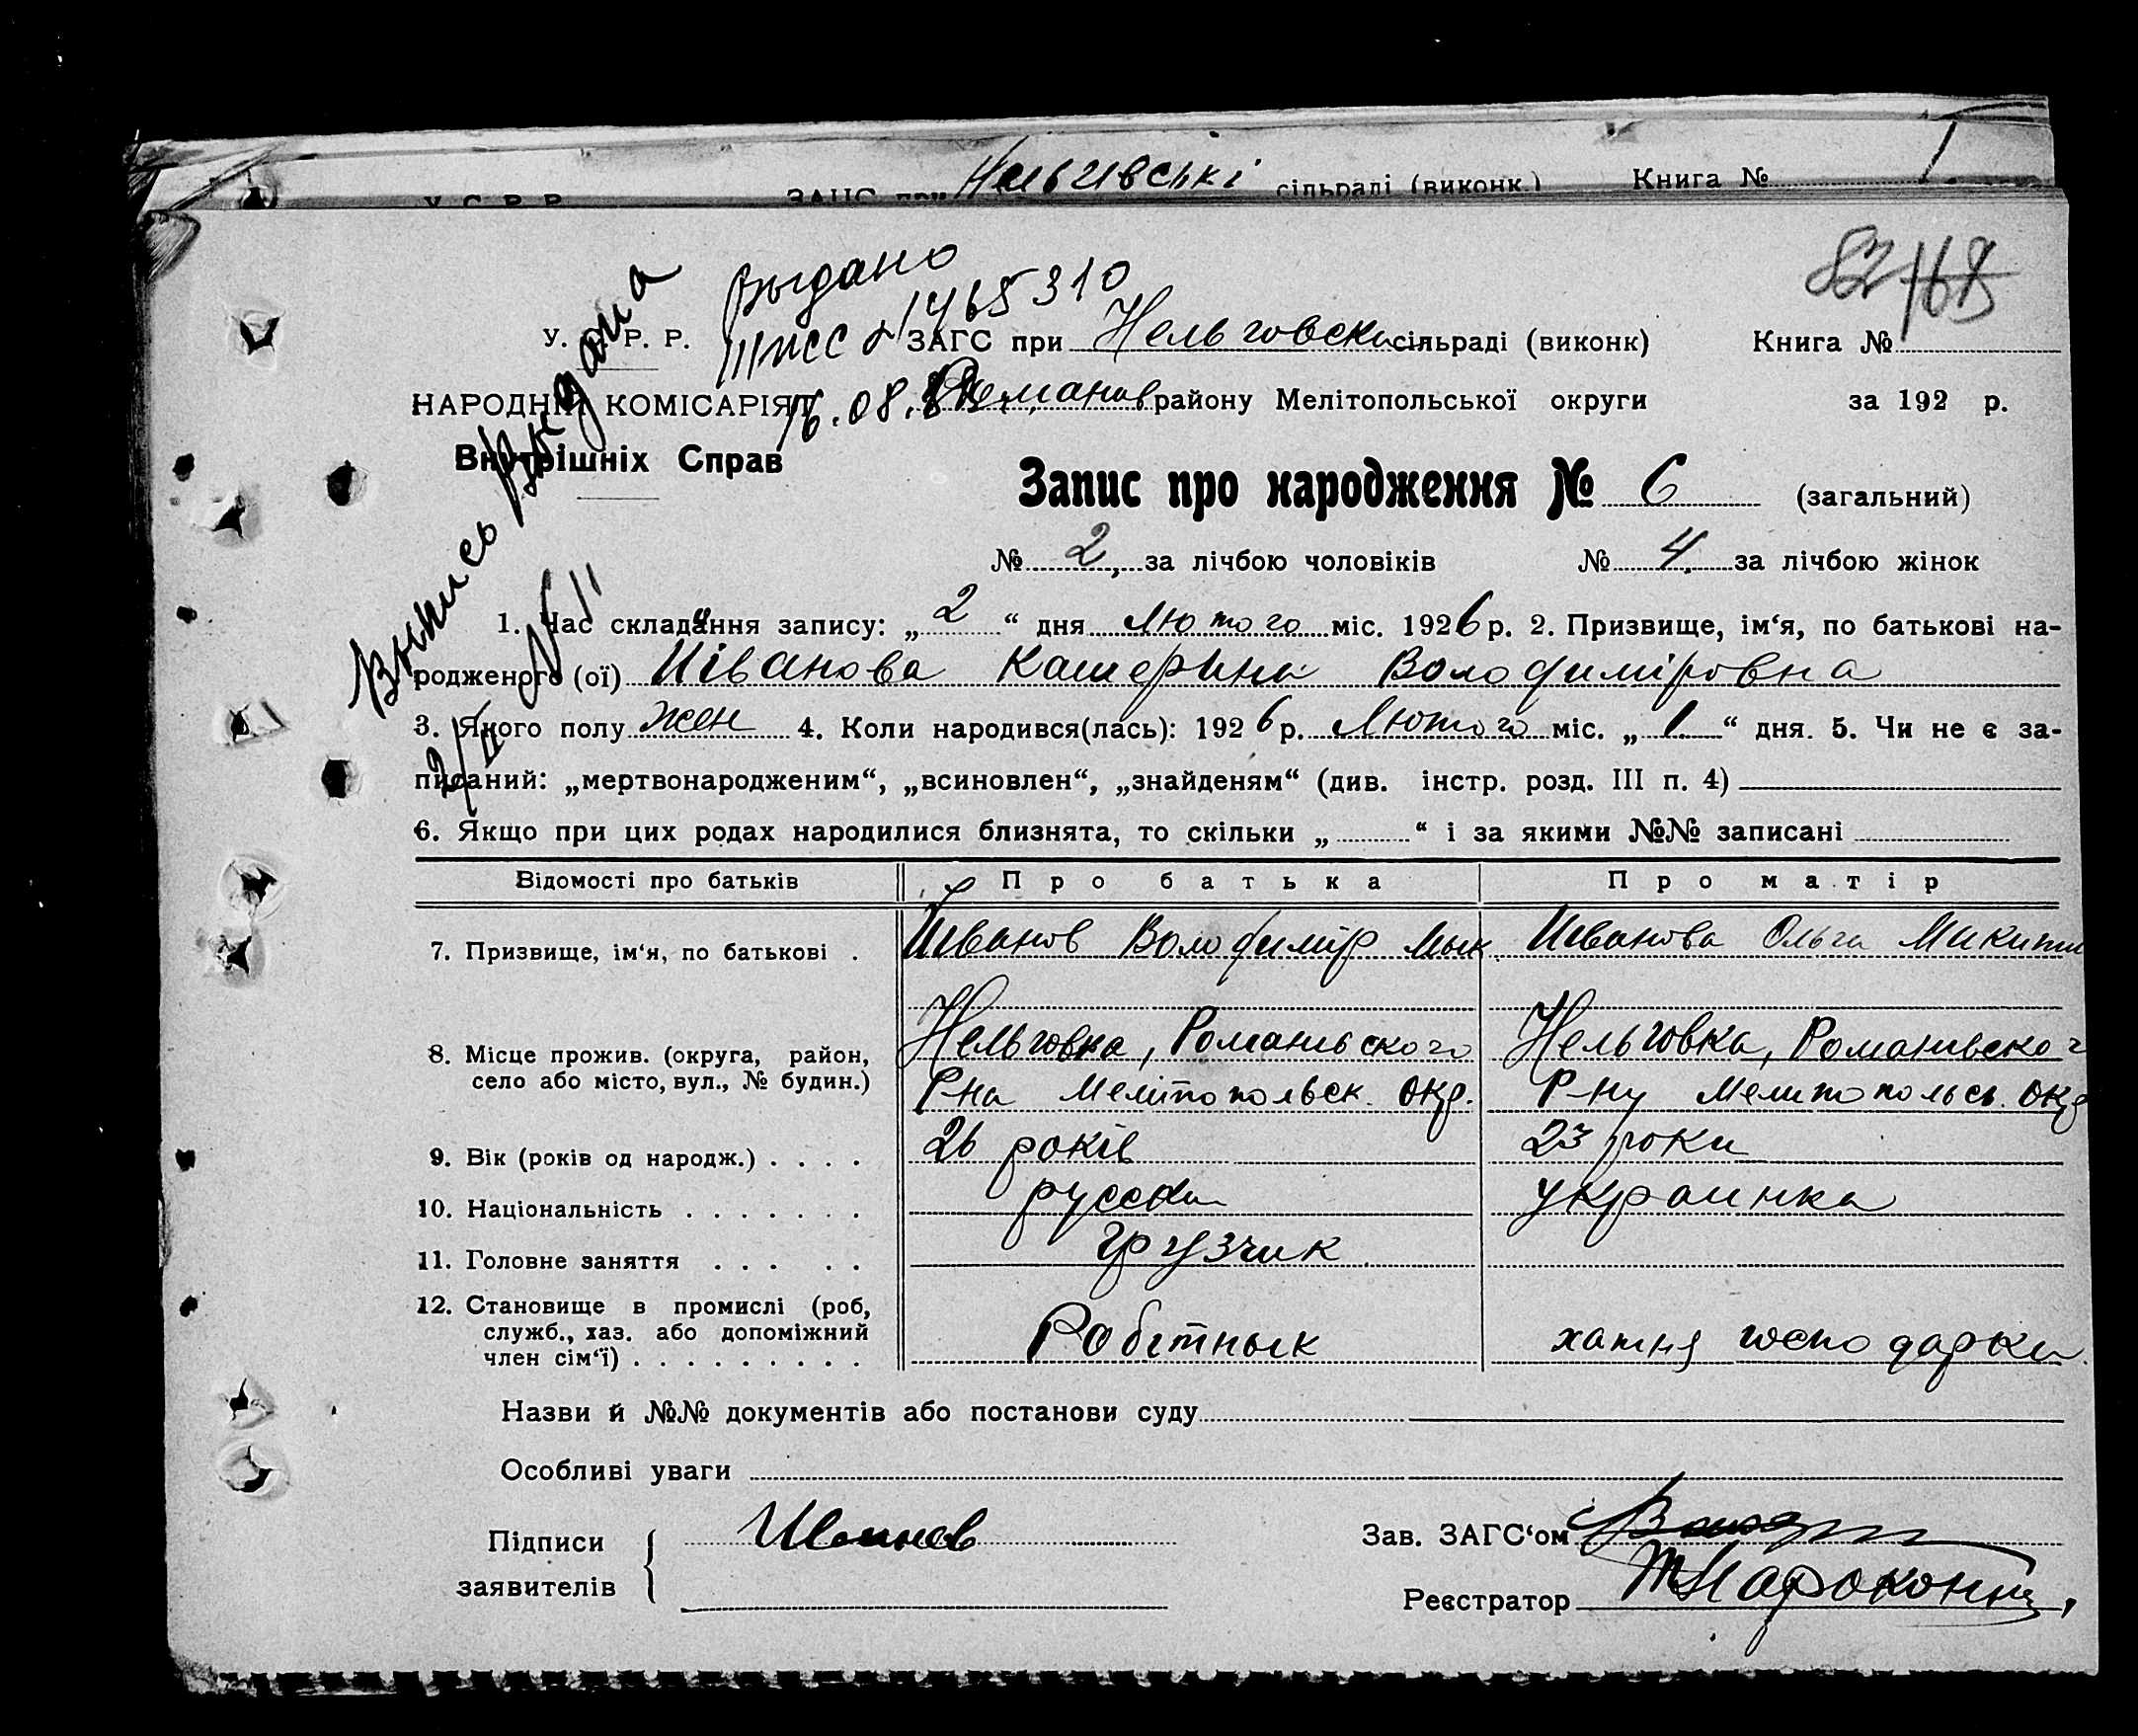 Нельгивські сільраді (виконк.) Книга № 1
82 169
Выдано
1465310
У. С. Р. Р. ЗАГС при Нельговски сільраді (виконк) Книга №
НАРОДНІЙ КОМІСАРІЯТ 16.08. Романов району Мелітопольської округи за 192 р.
Внутрішніх Справ
Запис про народження № 6 (загальний)
Выпись выдана
№ 11
№ 2, за лічбою чоловіків № 4. за лічбою жінок
1. Час складання запису: „ 2 “ дня Лютого міс. 1926 р. 2. Призвище, ім‘я, по батькові на-
родженого (ої) Иіванова Катерина Володиміровна
3. Якого полу жен 4. Коли народився(лась): 1926 р. Лютого міс. „ 1. “ дня. 5. Чи не є за-
писаний: „мертвонародженим“, „всиновлен“, „знайденям“ (див. інстр. розд. III п. 4)
6. Якщо при цих родах народилися близнята, то скільки „ “ і за якими №№ записані
Відомості про батьків Про батька Про матір
7. Призвище, ім‘я, по батькові . Иіванов Володимір Мык Иіванова Ольга Микит
8. Місце прожив. (округа, район, Нельговка, Романьского Нельговка, Романьвског
село або місто, вул., № будин.) Р-на Мелітопольск. окр. Р-ну Мелитопольск. окр
9. Вік (років од народж.) . . . . 26 років 23 роки
10. Національність . . . . . . . русский украинка
11. Головне заняття . . . . . грузчик
12. Становище в промислі (роб,
служб., хаз. або допоміжний
член сім‘ї) . . . . . . . . . Робітнык хатня господарка
Назви й №№ документів або постанови суду
Особливі уваги
Підписи Иванов Зав. ЗАГС‘ом
заявителів Реєстратор